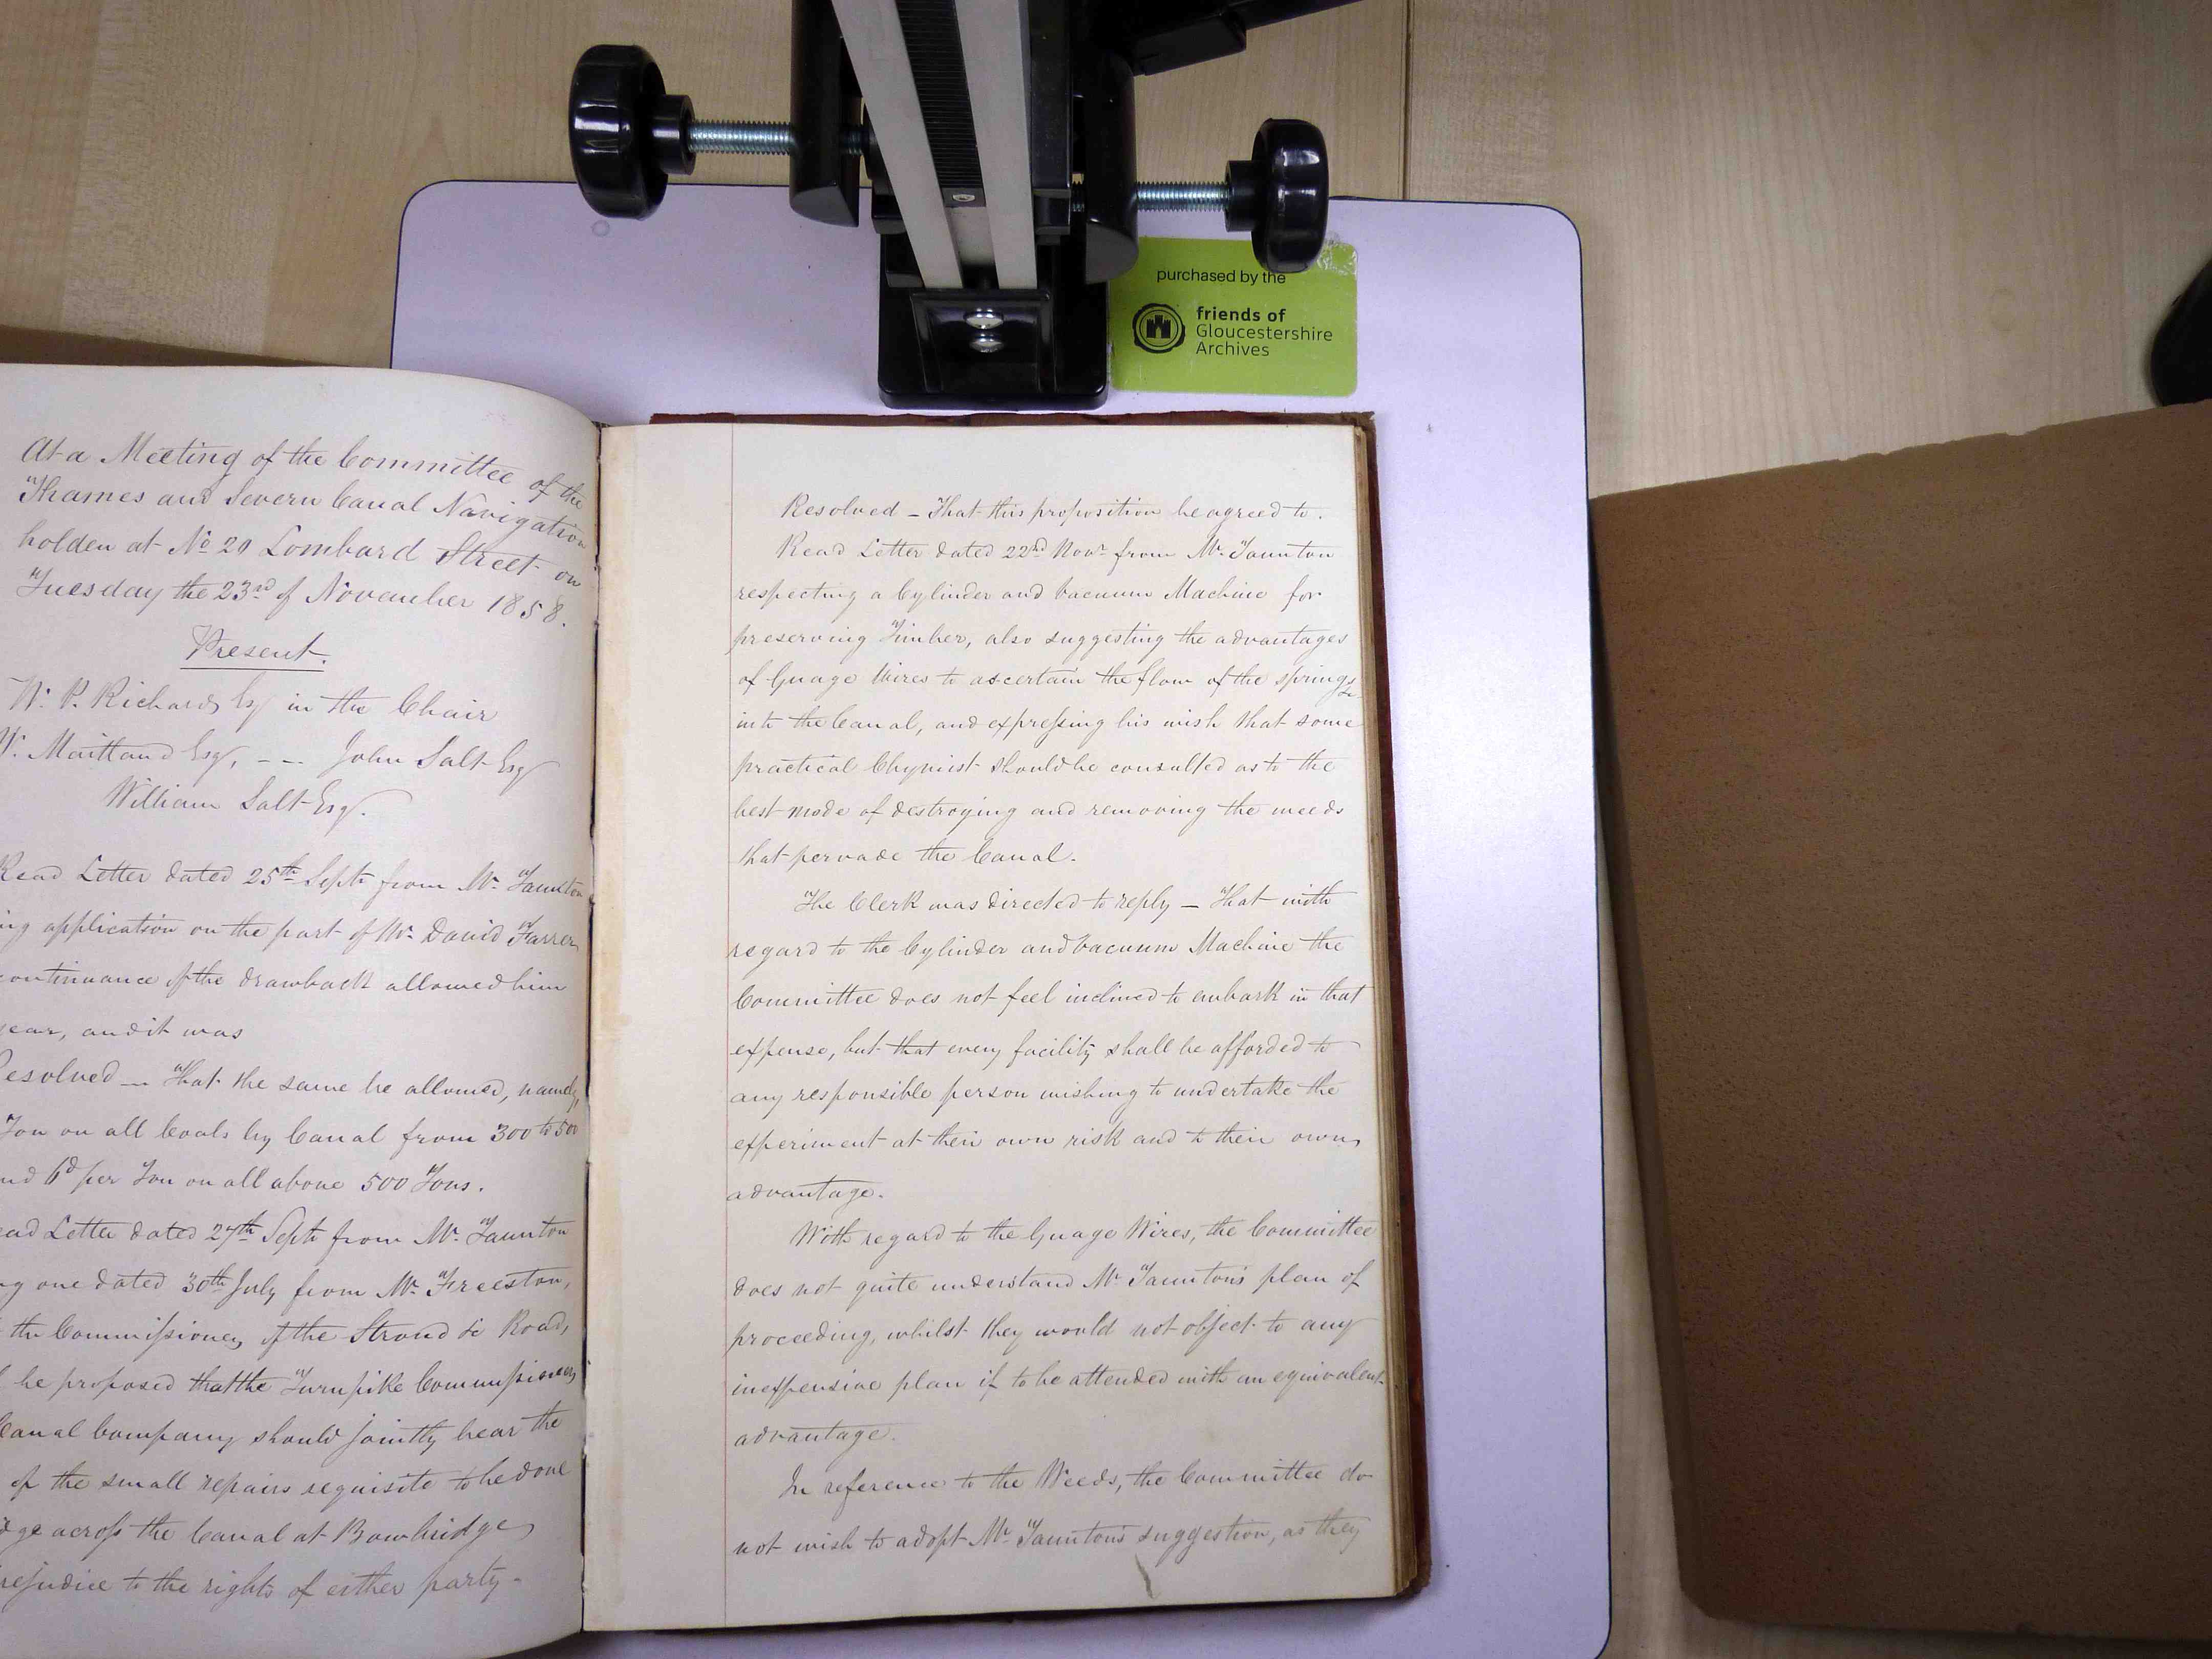 purchased by the
friends of
Gloucestershire
Archives
At a Meeting of the Committee of the
Thames and Severn Canal Navigation
holden at No 20 Lombard Street on
Tuesday the 23rd of November 1858.
Present.
W. P. Richards Esq in the Chair
W. Maitland Esq, - - - John Salt Esq
William Salt Esq.
Read Letter dated 25th Septr from Mr. Taunton
ing application on the part of Mr. David Farrer
continuance of the drawback allowed him
year, and it was
Resolved — That the same be allowed, namely,
Ton on all Coals by Canal from 300 to 500
and 6d per Ton on all above 500 Tons.
ead Letter dated 27th Septr from Mr. Taunton
ng one dated 30th July from Mr. Freeston,
the Commissioners of the Stroud &c Road,
he proposed that the Turnpike Commissioners
Canal Company should jointly bear the
of the small repairs requisite to be done
dge across the Canal at Bowbridge
rejudice to the rights of either party -
Resolved - That this proposition be agreed to.
Read Letter dated 22nd Novr from Mr. Taunton
respecting a Cylinder and Vacuum Machine for
preserving Timber, also suggesting the advantages
of Guage Wires to ascertain the flow of the springs &c
into the Canal, and expressing his wish that some
practical Chymist should be consulted as to the
best mode of destroying and removing the weeds
that pervade the Canal.
The Clerk was directed to reply — That with
regard to the Cylinder and Vacuum Machine the
Committee does not feel inclined to embark in that
expense, but that every facility shall be afforded to
any responsible person wishing to undertake the
experiment at their own risk and to their own
advantage.
With regard to the Guage Wires, the Committee
does not quite understand Mr Taunton's plan of
proceeding, whilst they would not object to any
inexpensive plan if to be attended with an equivalent
advantage.
In reference to the Weeds, the Committee do
not wish to adopt Mr Taunton's suggestion, as they